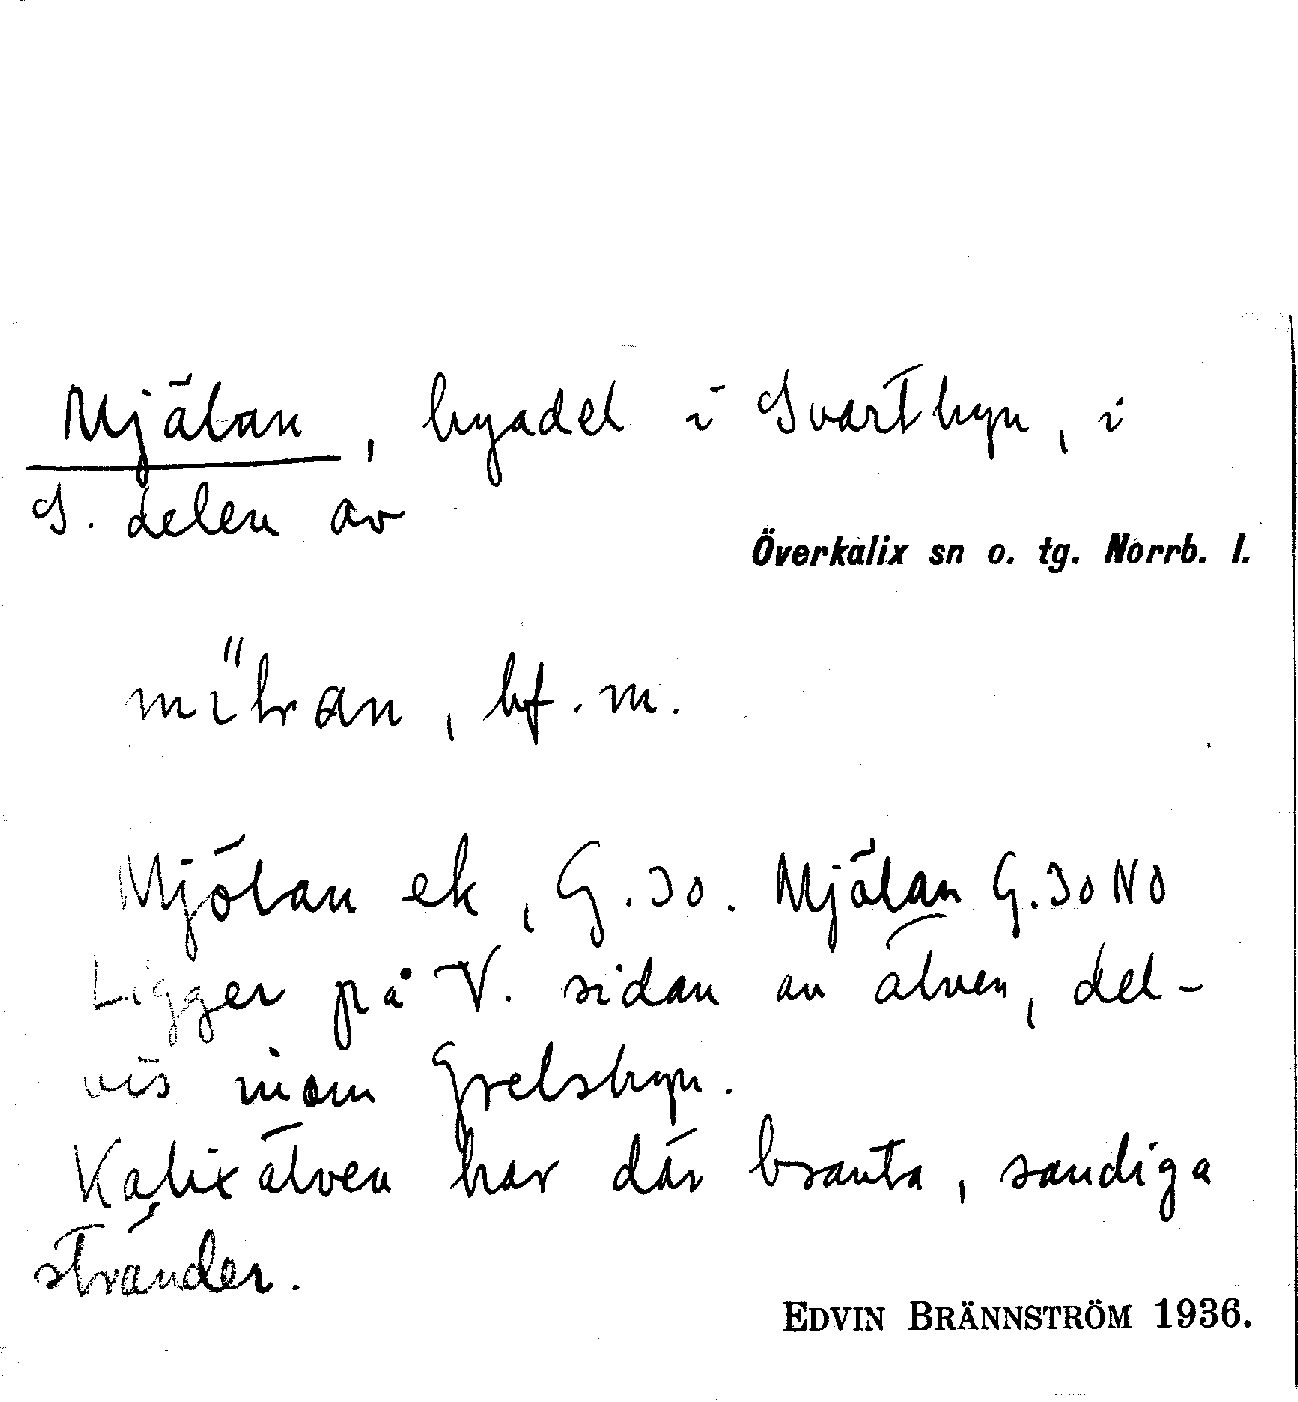 Mjälan, byadel i Svartbyn, i
S. delen av
Överkalix sn o. tg. Norrb. l.
bf. m.
Mjölan ek, G. Jo. Mjälan G. Jo NO
Ligger på V. sidan av älven, del-
vis inom Grelsbyn.
Kalixälven har där branta, sandiga
stränder.
EDVIN BRÄNNSTRÖM 1936.